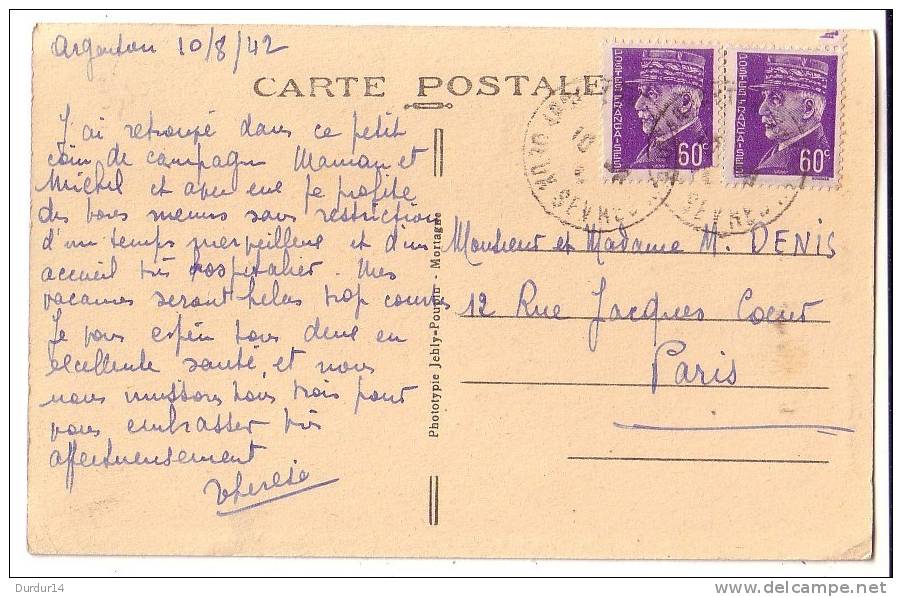 Argenton 10/8/42
CARTE POSTALE
J'ai retrouvé dans ce petit
coin de campagne Maman et
Michel et avec eux je profite
des bons menus sans restriction
d'un temps merveilleux et d'un
accueil très hospitalier. Mes
vacances seront helas trop courtes
Je vous espère tous deux en
excellente santé, et nous
nous unissons tous trois pour
vous embrasser très
affectueusement
Therese
Phototypie Jehly-Poupin - Mortagne
POSTES FRANÇAISES
60c
POSTES FRANÇAISES
60c
10
SEVRES
SEVRES
Monsieur et Madame M. DENIS
12 Rue Jacques Coeur
Paris
Durdur14
www.delcampe.net